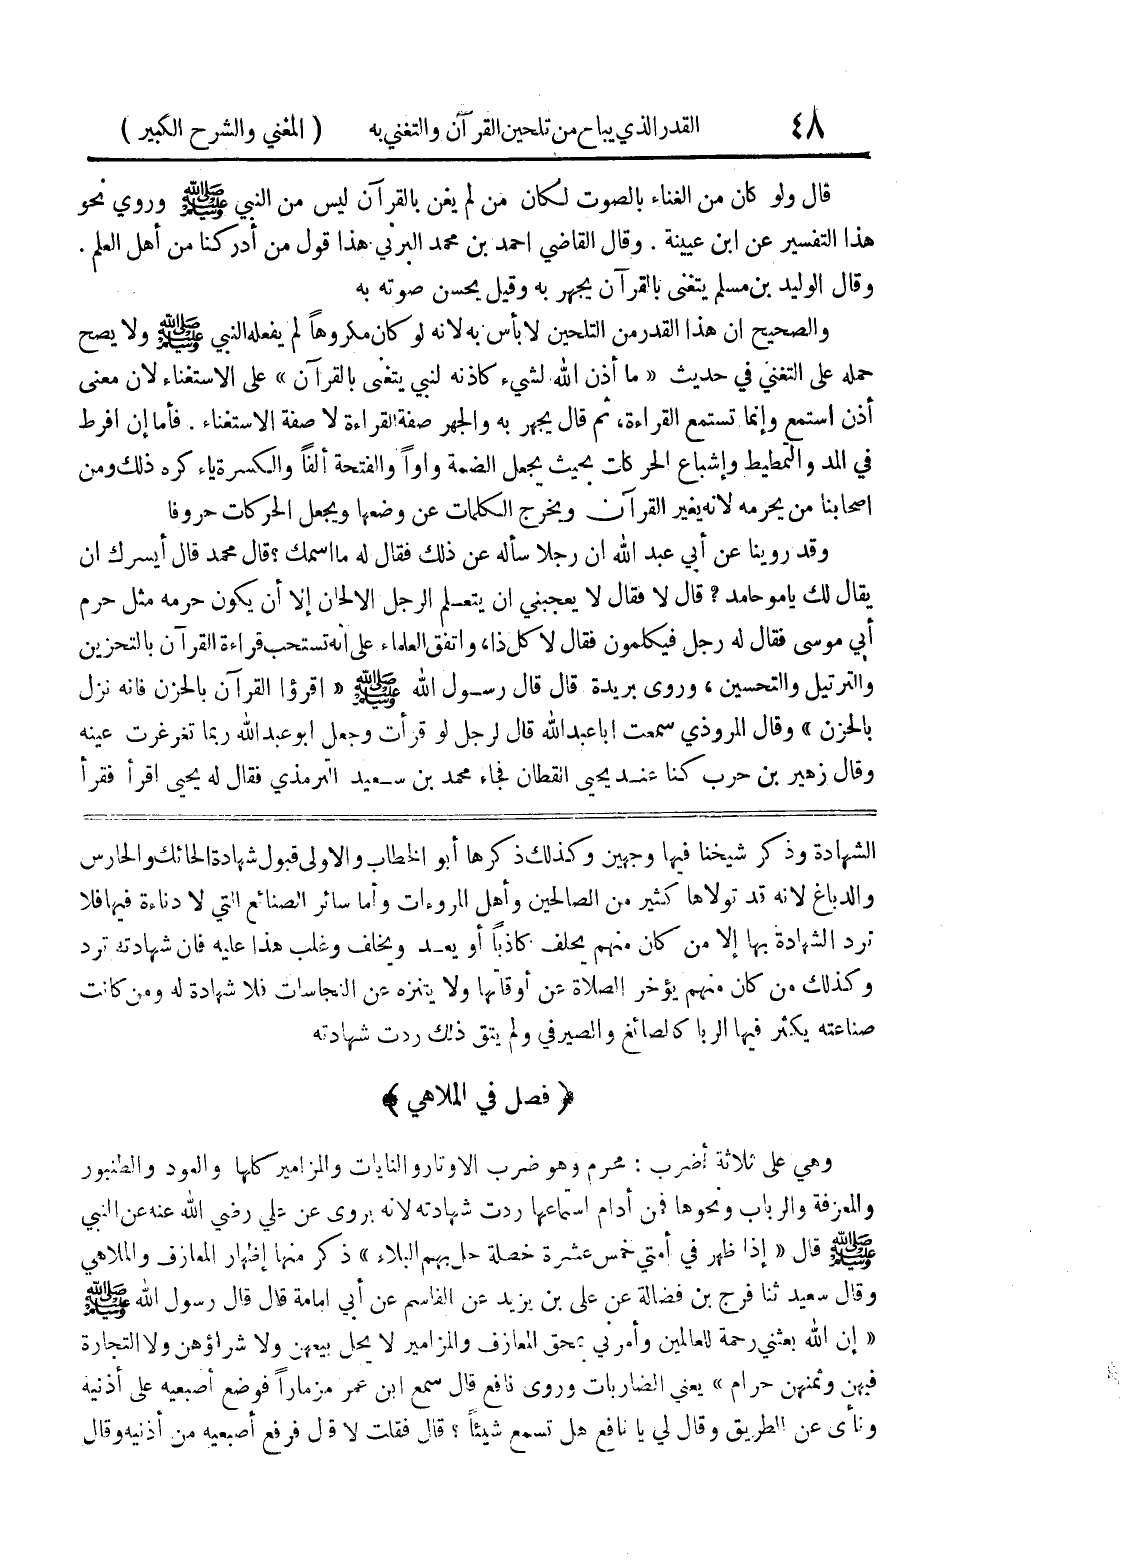 ٤٨ القدر الذي يباح من تلحين القرآن والتغني به ( المغني والشرح الكبير )
قال ولو كان من الغناء بالصوت لكان من لم يغن بالقرآن ليس من النبي ﷺ وروي نحو
هذا التفسير عن ابن عيينة . وقال القاضي احمد بن محمد البرتي هذا قول من أدركنا من أهل العلم .
وقال الوليد بن مسلم يتغنى بالقرآن يجهر به وقيل يحسن صوته به
والصحيح ان هذا القدر من التلحين لا بأس به لانه لو كان مكروهاً لم يفعله النبي ﷺ ولا يصح
حمله على التغني في حديث « ما أذن الله لشيء كاذنه لنبي يتغنى بالقرآن » على الاستغناء لان معنى
أذن استمع وإنما تستمع القراءة، ثم قال يجهر به والجهر صفة القراءة لا صفة الاستغناء . فأما إن افرط
في المد والتمطيط وإشباع الحركات بحيث يجعل الضمة واواً والفتحة ألفاً والكسرة ياء كره ذلك ومن
اصحابنا من يحرمه لانه يغير القرآن ويخرج الكلمات عن وضعها ويجعل الحركات حروفا
وقد روينا عن أبي عبد الله ان رجلا سأله عن ذلك فقال له ما اسمك ؟ قال محمد قال أيسرك ان
يقال لك يا موحامد ؟ قال لا فقال لا يعجبني ان يتعلم الرجل الالحان إلا أن يكون حرمه مثل حرم
أبي موسى فقال له رجل فيكلمون فقال لا كل ذا، واتفق العلماء على أنه تستحب قراءة القرآن بالتحزين
والترتيل والتحسين ، وروى بريدة قال قال رسول الله ﷺ « اقرؤا القرآن بالحزن فانه نزل
بالحزن » وقال المروذي سمعت ابا عبد الله قال لرجل لو قرأت وجعل ابو عبد الله ربما تغرغرت عينه
وقال زهير بن حرب كنا عند يحيى القطان فجاء محمد بن سعيد الترمذي فقال له يحيى اقرأ فقرأ
الشهادة وذكر شيخنا فيها وجهين وكذلك ذكرها أبو الخطاب والاولى قبول شهادة الحائك والحارس
والدباغ لانه قد تولاها كثير من الصالحين وأهل المروءات وأما سائر الصنائع التي لا دناءة فيها فلا
ترد الشهادة بها إلا من كان منهم يحلف كاذباً أو يعد ويخلف وغلب هذا عليه فان شهادته ترد
وكذلك من كان منهم يؤخر الصلاة عن أوقاتها ولا يتنزه عن النجاسات فلا شهادة له ومن كانت
صناعته يكثر فيها الربا كالصائغ والصيرفي ولم يتق ذلك ردت شهادته
﴿ فصل في الملاهي ﴾
وهي على ثلاثة أضرب : محرم وهو ضرب الاوتار والنايات والمزامير كلها والعود والطنبور
والمعزفة والرباب ونحوها فمن أدام استماعها ردت شهادته لانه يروى عن علي رضي الله عنه عن النبي
ﷺ قال « إذا ظهر في أمتي خمس عشرة خصلة حل بهم البلاء » ذكر منها إظهار المعازف والملاهي
وقال سعيد ثنا فرج بن فضالة عن علي بن يزيد عن القاسم عن أبي امامة قال قال رسول الله ﷺ
« إن الله بعثني رحمة للعالمين وأمرني بمحق المعازف والمزامير لا يحل بيعهن ولا شراؤهن ولا التجارة
فيهن وثمنهن حرام » يعني الضاربات وروى نافع قال سمع ابن عمر مزماراً فوضع أصبعيه على أذنيه
ونأى عن الطريق وقال لي يا نافع هل تسمع شيئاً ؟ قال فقلت لا قال فرفع أصبعيه من أذنيه وقال